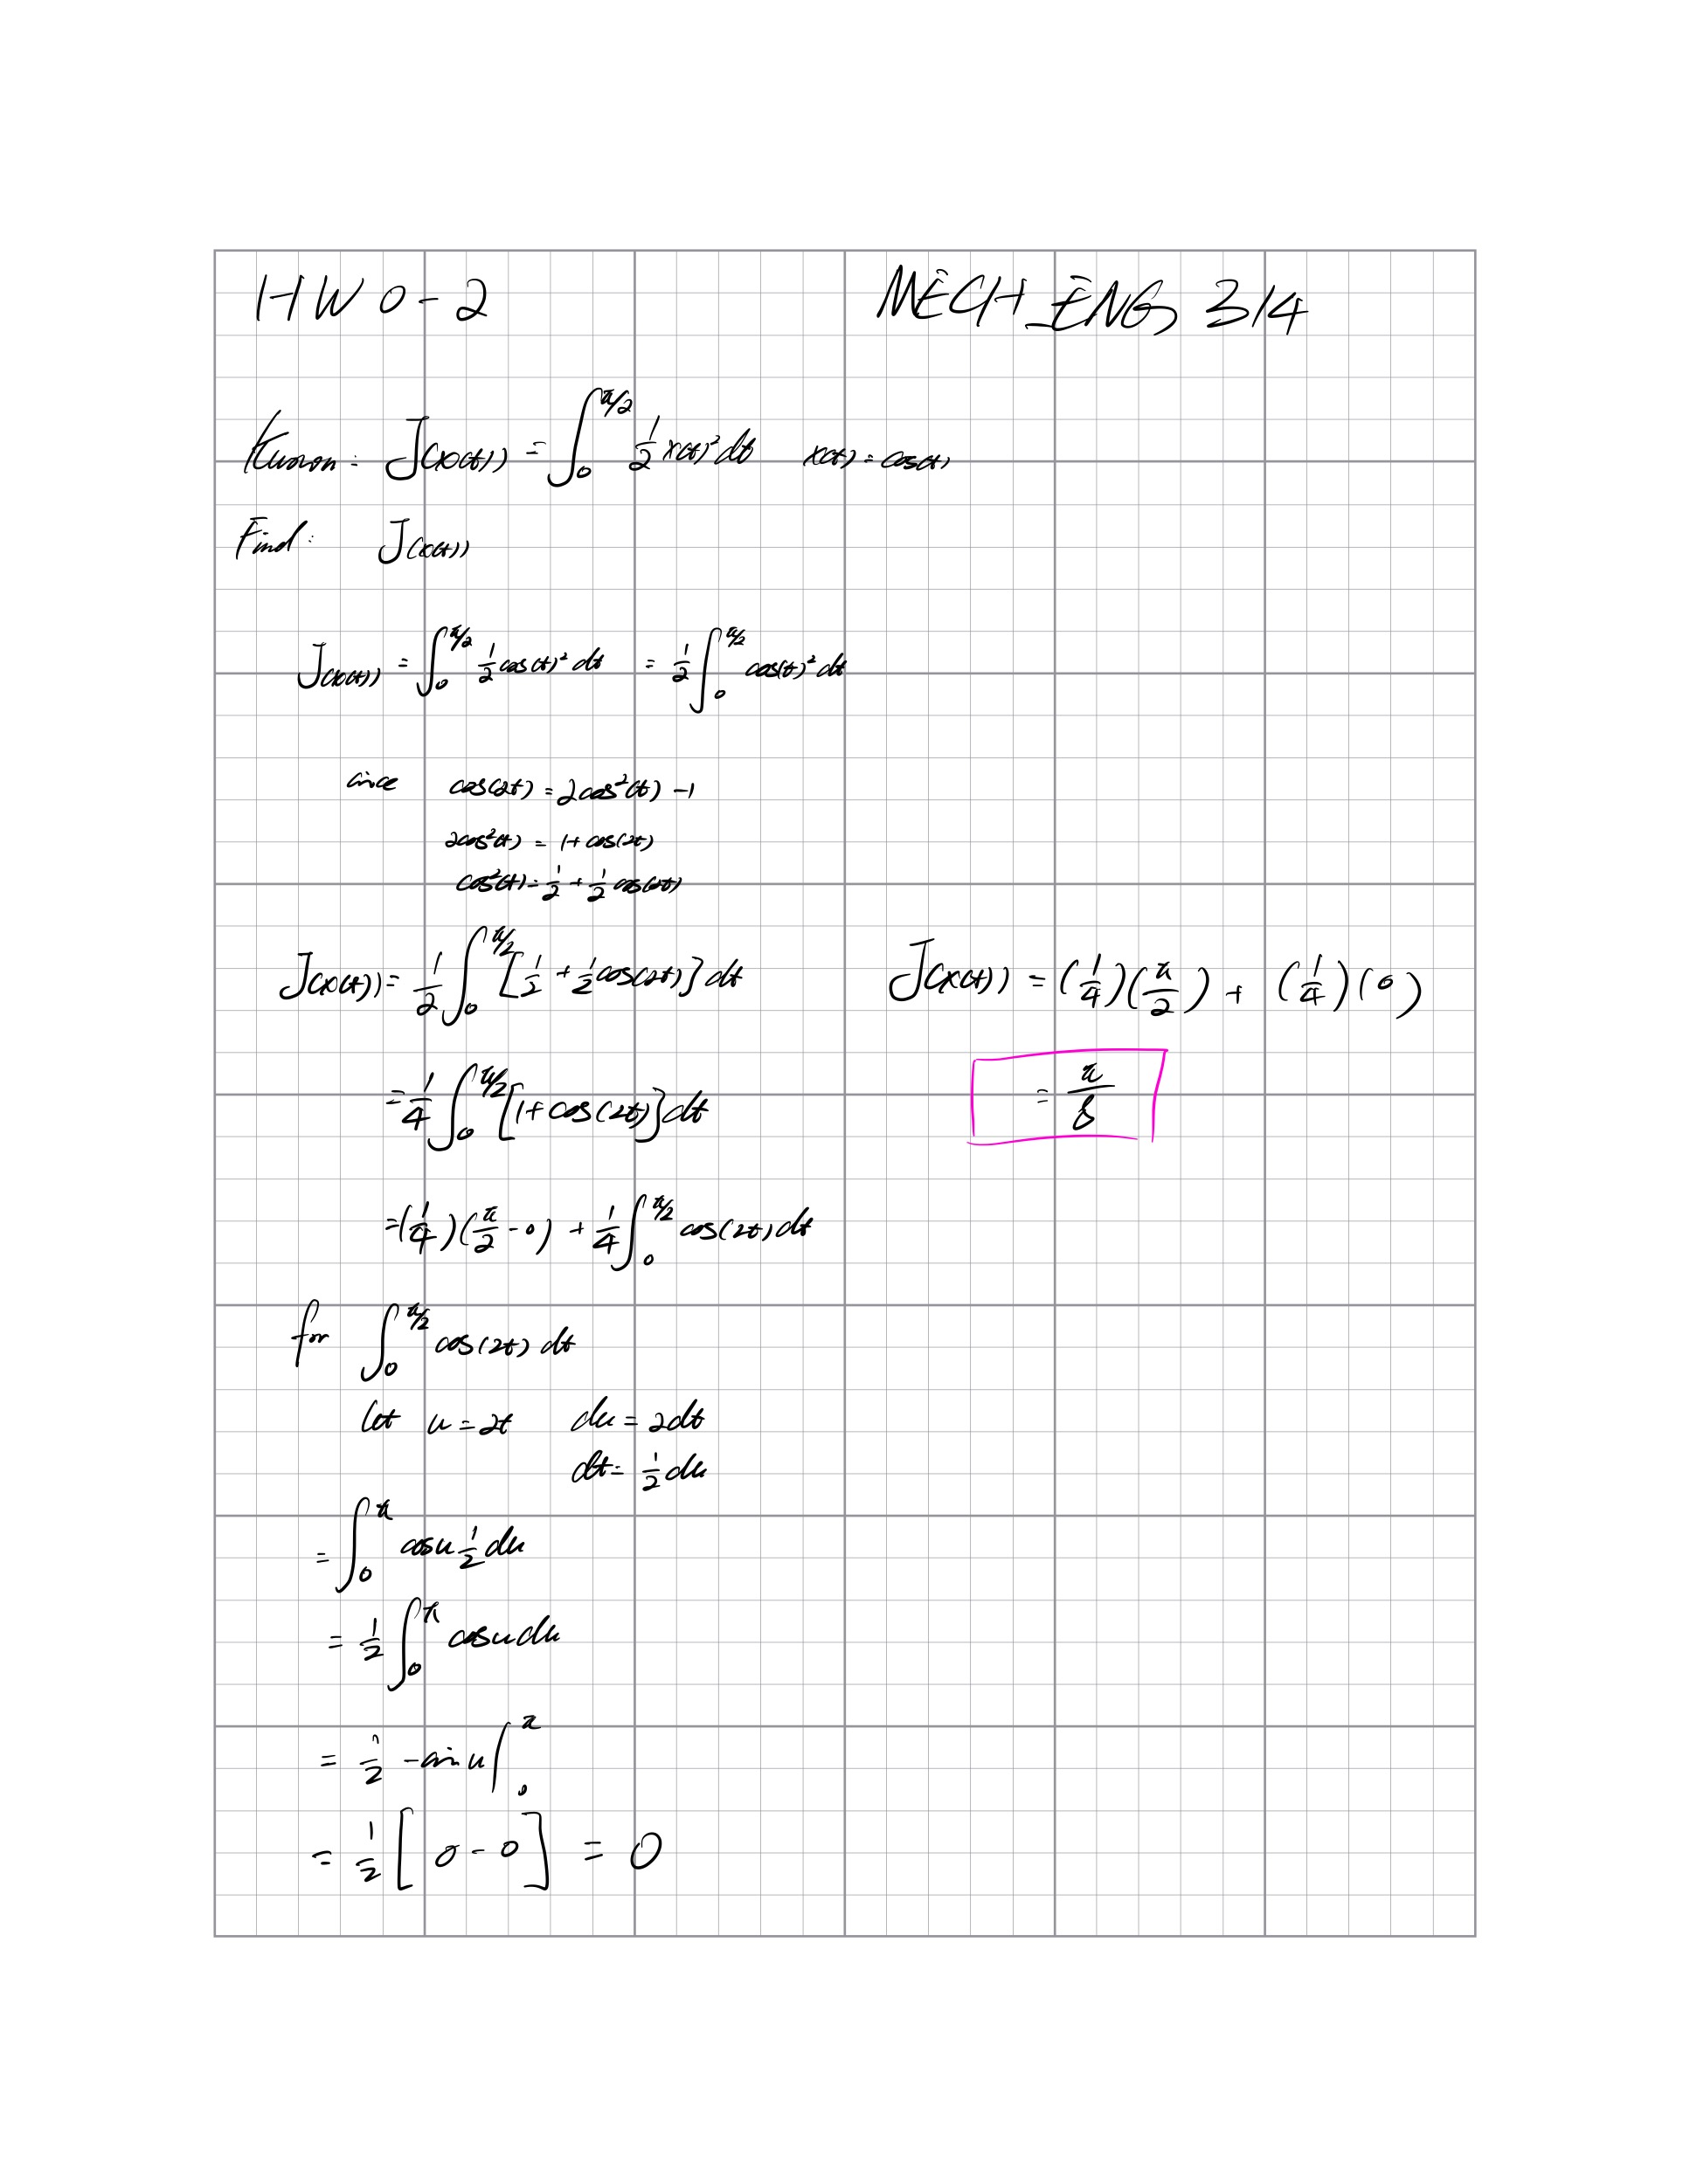 HW 0-2
MECH_ENG 314
Known: J(x(t)) = ∫₀^(π/2) 1/2 x(t)² dt   x(t) = cos(t)
Find: J(x(t))
J(x(t)) = ∫₀^(π/2) 1/2 cos(t)² dt = 1/2 ∫₀^(π/2) cos(t)² dt
since cos(2t) = 2cos²(t) - 1
2cos²(t) = 1 + cos(2t)
cos²(t) = 1/2 + 1/2 cos(2t)
J(x(t)) = 1/2 ∫₀^(π/2) [1/2 + 1/2 cos(2t)] dt
= 1/4 ∫₀^(π/2) [1 + cos(2t)] dt
= (1/4)(π/2 - 0) + 1/4 ∫₀^(π/2) cos(2t) dt
for ∫₀^(π/2) cos(2t) dt
let u = 2t   du = 2dt
dt = 1/2 du
= ∫₀^π cos u 1/2 du
= 1/2 ∫₀^π cos u du
= 1/2 -sin u |₀^π
= 1/2 [0 - 0] = 0
J(x(t)) = (1/4)(π/2) + (1/4)(0)
= π/8